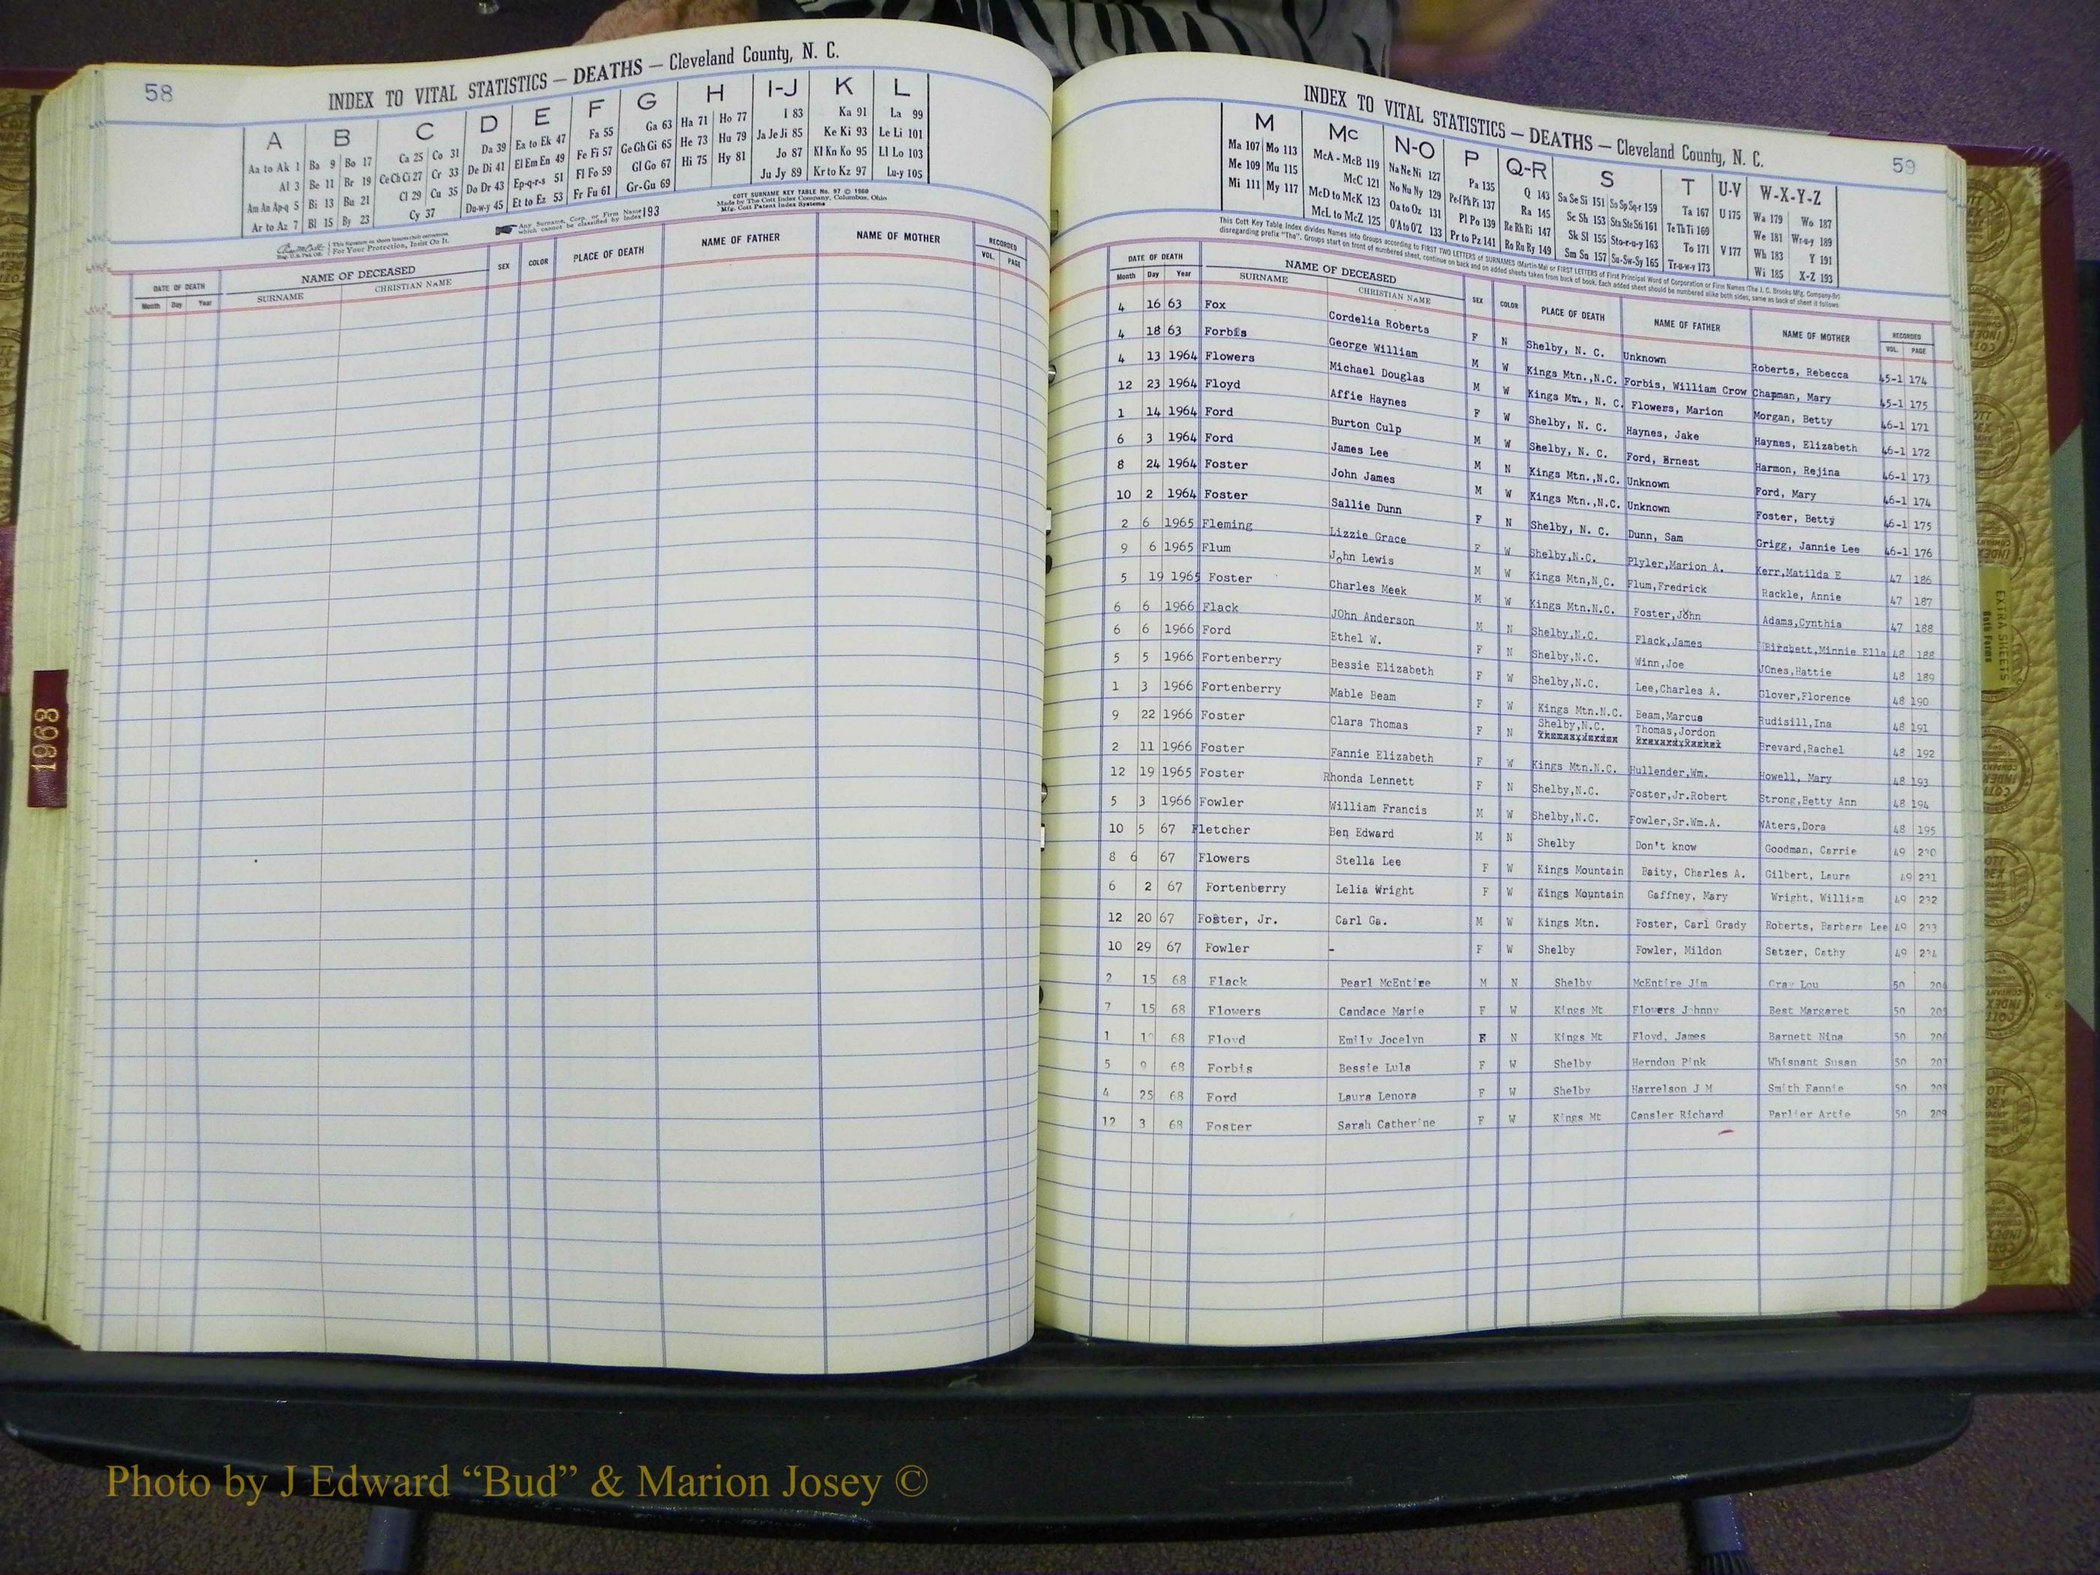 58
INDEX TO VITAL STATISTICS — DEATHS — Cleveland County, N. C.
A B C D E F G H I-J K L
Aa to Ak 1 Ba 9 Bo 17 Ca 25 Co 31 Da 39 Ea to Ek 47 Fa 55 Ga 63 Ha 71 Ho 77 I 83 Ka 91 La 99
Al 3 Be 11 Br 19 Ce Ch Ci 27 Cr 33 De Di 41 El Em En 49 Fe Fi 57 Ge Gh Gi 65 He 73 Hu 79 Ja Je Ji 85 Ke Ki 93 Le Li 101
Am An Ap-q 5 Bi 13 Bu 21 Cl 29 Cu 35 Do Dr 43 Ep-q-r-s 51 Fl Fo 59 Gl Go 67 Hi 75 Hy 81 Jo 87 Kl Kn Ko 95 Ll Lo 103
Ar to Az 7 Bl 15 By 23 Cy 37 Du-w-y 45 Et to Ez 53 Fr Fu 61 Gr-Gu 69 Ju Jy 89 Kr to Kz 97 Lu-y 105
COTT SURNAME KEY TABLE No. 97 © 1960
Made by The Cott Index Company, Columbus, Ohio
Mfg. Cott Patent Index Systems
Any Surname, Corp. or Firm Name which cannot be classified by Index 193
For Your Protection, Insist On It.
DATE OF DEATH NAME OF DECEASED SEX COLOR PLACE OF DEATH NAME OF FATHER NAME OF MOTHER RECORDED
Month Day Year SURNAME CHRISTIAN NAME VOL. PAGE
1968
INDEX TO VITAL STATISTICS — DEATHS — Cleveland County, N. C.
59
M Mc N-O P Q-R S T U-V W-X-Y-Z
Ma 107 Mo 113 McA - McB 119 Na Ne Ni 127 Pa 135 Q 143 Sa Se Si 151 So Sp Sq-r 159 Ta 167 U 175 Wa 179 Wo 187
Me 109 Mu 115 McC 121 No Nu Ny 129 Pe-f Ph Pi 137 Ra 145 Sc Sh 153 Sta Ste Sti 161 Te Th Ti 169 We 181 Wr-u-y 189
Mi 111 My 117 McD to McK 123 Oa to Oz 131 Pl Po 139 Re Rh Ri 147 Sk Sl 155 Sto-r-u-y 163 To 171 V 177 Wh 183 Y 191
McL to McZ 125 O'A to O'Z 133 Pr to Pz 141 Ro Ru Ry 149 Sm Sn 157 Su-Sw-Sy 165 Tr-u-w-y 173 Wi 185 X-Z 193
This Cott Key Table Index divides Names into Groups according to FIRST TWO LETTERS of SURNAMES (Martin-Ma) or FIRST LETTERS of First Principal Word of Corporation or Firm Names (The J. C. Brooks Mfg. Company-Br)
disregarding prefix "The". Groups start on front of numbered sheet, continue on back and on added sheets taken from back of book. Each added sheet should be numbered alike both sides, same as back of sheet it follows.
DATE OF DEATH NAME OF DECEASED SEX COLOR PLACE OF DEATH NAME OF FATHER NAME OF MOTHER RECORDED
Month Day Year SURNAME CHRISTIAN NAME VOL. PAGE
4 16 63 Fox Cordelia Roberts F N Shelby, N. C. Unknown Roberts, Rebecca 45-1 174
4 18 63 Forbis George William M W Kings Mtn.,N.C. Forbis, William Crow Chapman, Mary 45-1 175
4 13 1964 Flowers Michael Douglas M W Kings Mtn., N. C. Flowers, Marion Morgan, Betty 46-1 171
12 23 1964 Floyd Affie Haynes F W Shelby, N. C. Haynes, Jake Haynes, Elizabeth 46-1 172
1 14 1964 Ford Burton Culp M W Shelby, N. C. Ford, Ernest Harmon, Rejina 46-1 173
6 3 1964 Ford James Lee M N Kings Mtn.,N.C. Unknown Ford, Mary 46-1 174
8 24 1964 Foster John James M W Kings Mtn.,N.C. Unknown Foster, Betty 46-1 175
10 2 1964 Foster Sallie Dunn F N Shelby, N. C. Dunn, Sam Grigg, Jannie Lee 46-1 176
2 6 1965 Fleming Lizzie Grace F W Shelby,N.C. Plyler,Marion A. Kerr,Matilda E 47 186
9 6 1965 Flum John Lewis M W Kings Mtn,N.C. Flum,Fredrick Rackle, Annie 47 187
5 19 1965 Foster Charles Meek M W Kings Mtn.N.C. Foster,John Adams,Cynthia 47 188
6 6 1966 Flack JOhn Anderson M N Shelby,N.C. Flack,James Birchett,Minnie Ella 48 188
6 6 1966 Ford Ethel W. F N Shelby,N.C. Winn,Joe JOnes,Hattie 48 189
5 5 1966 Fortenberry Bessie Elizabeth F W Shelby,N.C. Lee,Charles A. Glover,Florence 48 190
1 3 1966 Fortenberry Mable Beam F W Kings Mtn.N.C. Beam,Marcus Rudisill,Ina 48 191
9 22 1966 Foster Clara Thomas F N Shelby,N.C. Thomas,Jordon Brevard,Rachel 48 192
2 11 1966 Foster Fannie Elizabeth F W Kings Mtn.N.C. Hullender,Wm. Howell, Mary 48 193
12 19 1965 Foster Rhonda Lennett F N Shelby,N.C. Foster,Jr.Robert Strong,Betty Ann 48 194
5 3 1966 Fowler William Francis M W Shelby,N.C. Fowler,Sr.Wm.A. WAters,Dora 48 195
10 5 67 Fletcher Ben Edward M N Shelby Don't know Goodman, Carrie 49 230
8 6 67 Flowers Stella Lee F W Kings Mountain Baity, Charles A. Gilbert, Laura 49 231
6 2 67 Fortenberry Lelia Wright F W Kings Mountain Gaffney, Mary Wright, William 49 232
12 20 67 Foster, Jr. Carl Ga. M W Kings Mtn. Foster, Carl Grady Roberts, Barbara Lee 49 233
10 29 67 Fowler - F W Shelby Fowler, Mildon Setzer, Cathy 49 234
2 15 68 Flack Pearl McEntire M N Shelby McEntire Jim Gray Lou 50
7 15 68 Flowers Candace Marie F W Kings Mt Flowers Johnny Best Margaret 50
1 68 Floyd Emily Jocelyn F N Kings Mt Floyd, James Barnett Nina 50
5 9 68 Forbis Bessie Lula F W Shelby Herndon Pink Whisnant Susan 50 207
4 25 68 Ford Laura Lenora F W Shelby Harrelson J M Smith Fannie 50 208
12 3 68 Foster Sarah Catherine F W Kings Mt Cansler Richard Parlier Artie 50 209
EXTRA SHEETS
Both Forms
Photo by J Edward “Bud” & Marion Josey ©